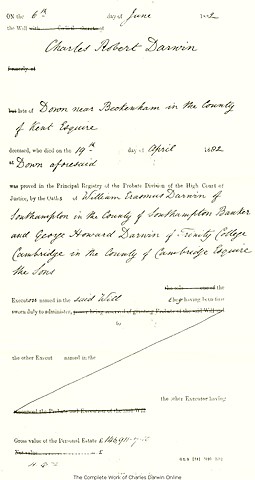 ON the 6th day of June 1882
the Will
Charles Robert Darwin
formerly of
but late of Down near Beckenham in the County
of Kent Esquire
deceased, who died on the 19th day of April 1882
at Down aforesaid
was proved in the Principal Registry of the Probate Division of the High Court of
Justice, by the Oaths of William Erasmus Darwin of
Southampton in the County of Southampton Banker
and George Howard Darwin of Trinity College
Cambridge in the County of Cambridge Esquire
the Sons
the
Executors named in the said Will they having been first
sworn duly to administer, power being reserved of granting Probate of the said Will
to
the other Execut named in the
the other Executor having
renounced the Probate and Execution of the said Will
Gross value of the Personal Estate £
Net value £
The Complete Work of Charles Darwin Online